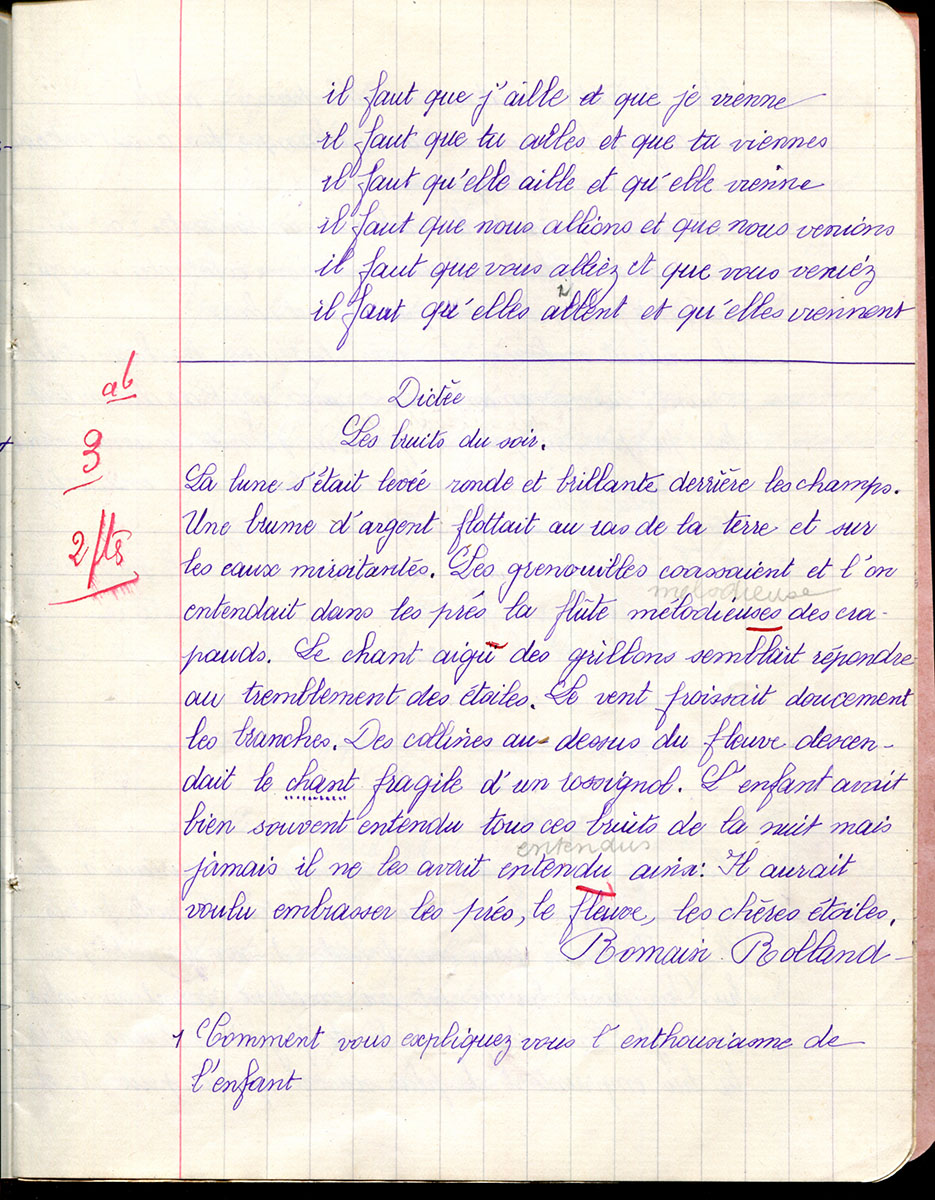 il faut que j'aille et que je vienne
il faut que tu ailles et que tu viennes
il faut qu'elle aille et qu'elle vienne
il faut que nous allions et que nous venions
il faut que vous alliez et que vous veniez
il faut qu'elles aillent et qu'elles viennent
Dictée
Les bruits du soir.
ab
3
La lune s'était levée ronde et brillante derrière les champs.
Une brume d'argent flottait au ras de la terre et sur
2 fts
les eaux miroitantes. Les grenouilles coassaient et l'on
mélodieuse
entendait dans les prés la flûte mélodieuses des cra-
pauds. Le chant aigü des grillons semblait répondre
au tremblement des étoiles. Le vent froissait doucement
les branches. Des collines au-dessus du fleuve descen-
dait le chant fragile d'un rossignol. L'enfant avait
bien souvent entendu tous ces bruits de la nuit mais
entendus
jamais il ne les avait entendu ainsi: Il aurait
voulu embrasser les prés, le fleuve, les chères étoiles.
Romain Rolland-
1 Comment vous expliquez vous l'enthousiasme de
l'enfant